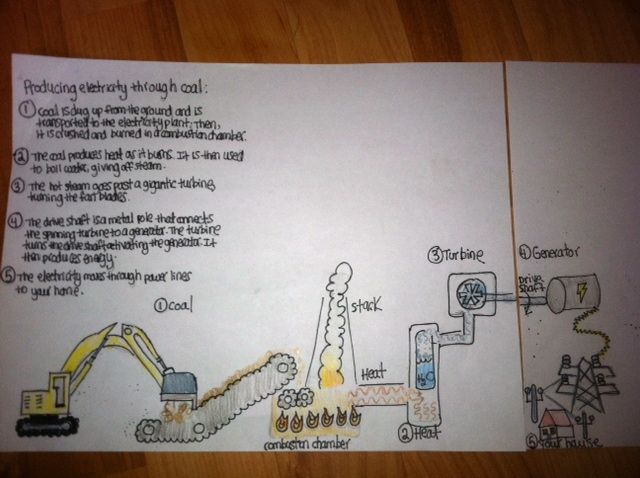 Producing electricity through coal:
① Coal is dug up from the ground and is
transported to the electricity plant. Then,
it is crushed and burned in a combustion chamber.
② The coal produces heat as it burns. It is then used
to boil water, giving off steam.
③ The hot steam goes past a gigantic turbine,
turning the fan blades.
④ The drive shaft is a metal pole that connects
the spinning turbine to a generator. The turbine
turns the drive shaft activating the generator. It
then produces energy.
⑤ The electricity moves through power lines
to your home.
① Coal
stack
Heat
combustion chamber
② Heat
H₂O
③ Turbine
④ Generator
Drive
shaft
⑤ Your house